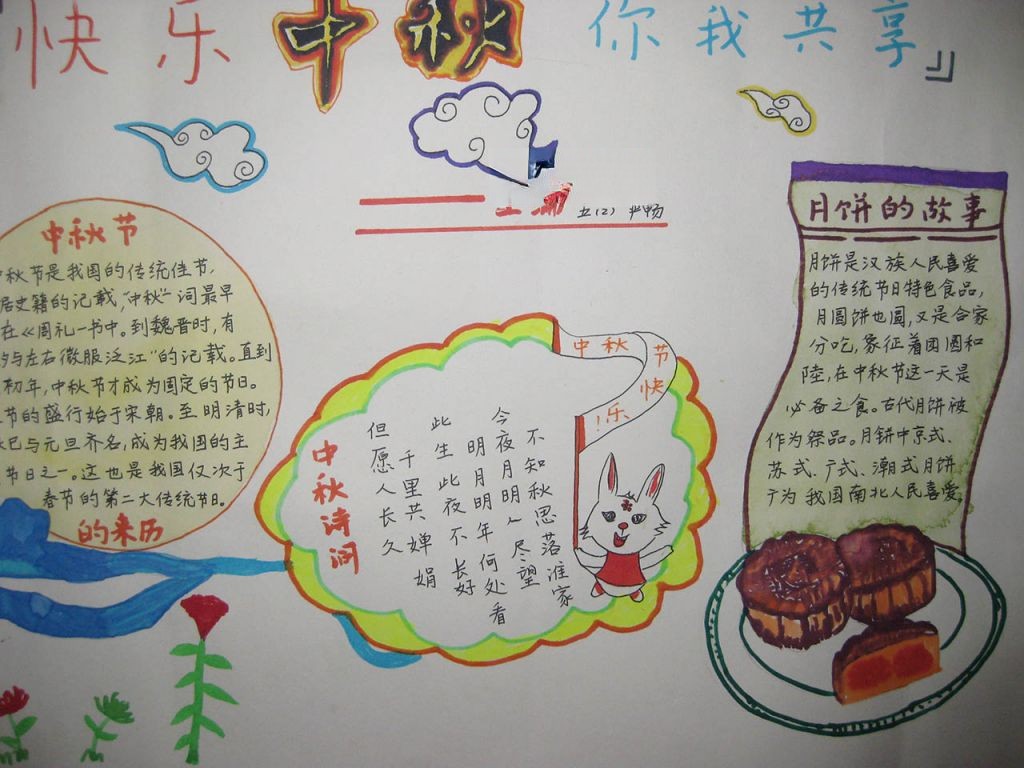 快乐中秋 你我共享』
五(2) 尹畅
中秋节
秋节是我国的传统佳节,
居史籍的记载,"中秋"一词最早
在《周礼一书中。到魏晋时,有
与左右微服泛江"的记载。直到
初年,中秋节才成为固定的节日。
节的盛行始于宋朝。至明清时,
已与元旦齐名,成为我国的主
节日之一。这也是我国仅次于
春节的第二大传统节日。
的来历
中秋节快乐!
中秋诗词
今夜月明人尽望
不知秋思落淮家
此生此夜不长好
明月明年何处看
但愿人长久
千里共婵娟
月饼的故事
月饼是汉族人民喜爱
的传统节日特色食品,
月圆饼也圆,又是合家
分吃,象征着团圆和
陸,在中秋节这一天是
必备之食。古代月饼被
作为祭品。月饼中京式、
苏式、广式、潮式月饼
广为我国南北人民喜爱。